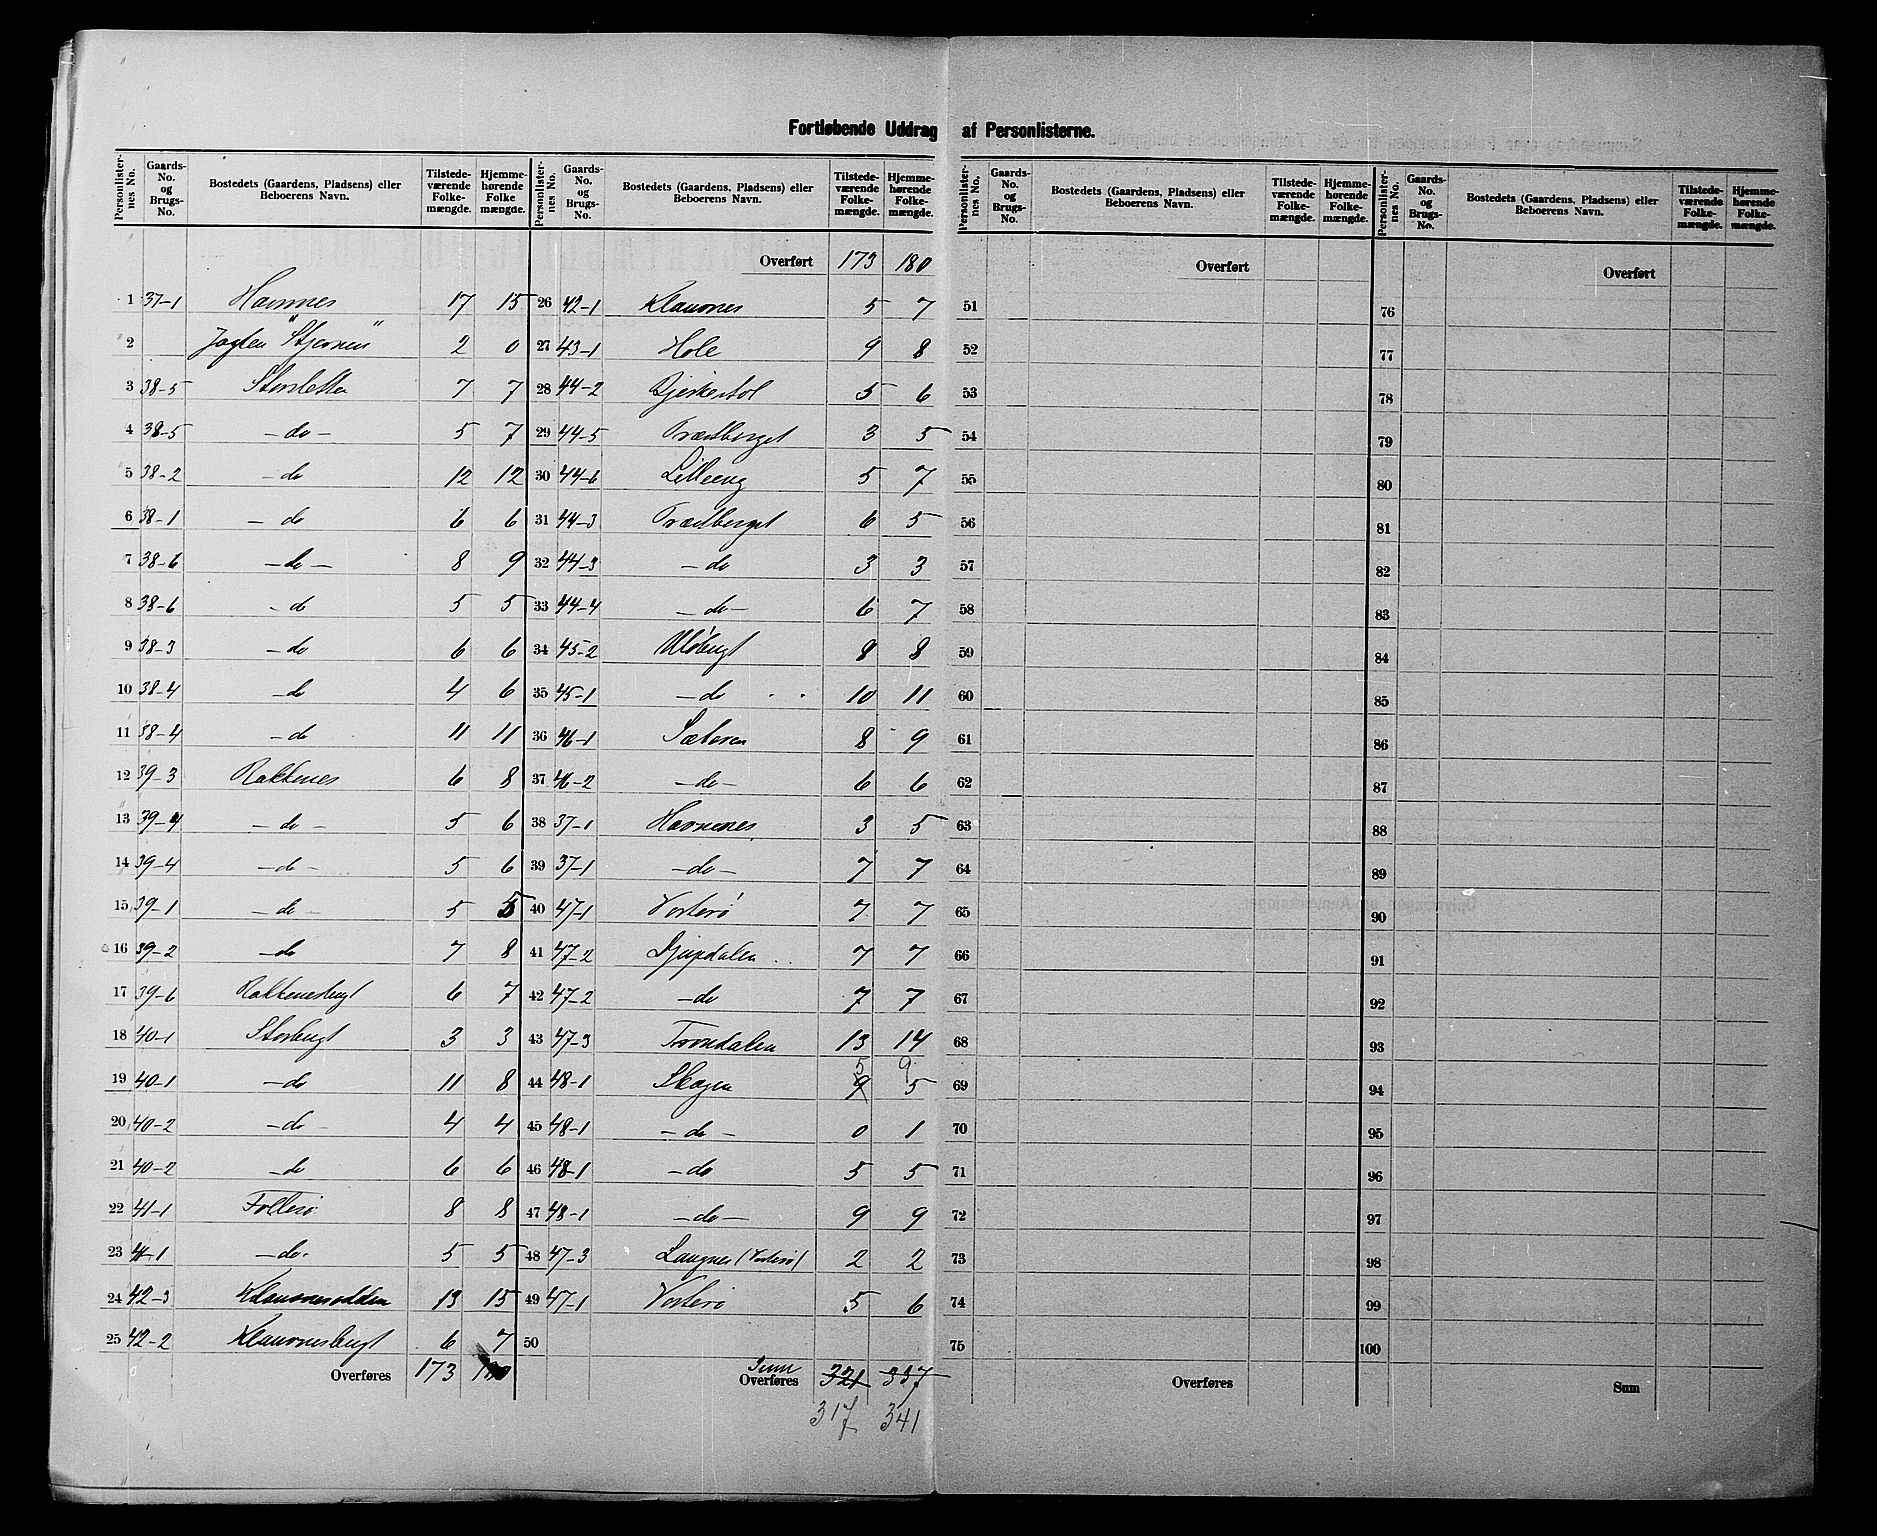 Fortløbende Uddrag af Personlisterne.
Personlister-nes No. Gaards-No. og Brugs-No. Bostedets (Gaardens, Pladsens) eller Beboerens Navn. Tilstede-værende Folke-mængde. Hjemme-hørende Folke mængde.
Personlister-nes No. Gaards-No. og Brugs-No. Bostedets (Gaardens, Pladsens) eller Beboerens Navn. Tilstede-værende Folke-mængde. Hjemme-hørende Folke-mængde.
1 37-1 Havnnes 17 15
2 Jagten "Stjernen" 2 0
3 38-5 Storsletta 7 7
4 38-5 -do- 5 7
5 38-2 -do 12 12
6 38-1 -do 6 6
7 38-6 -do- 8 9
8 38-6 -do 5 5
9 38-3 -do 6 6
10 38-4 -do 4 6
11 38-4 -do 11 11
12 39-3 Rakkenes 6 8
13 39-4 -do- 5 6
14 39-4 -do- 5 6
15 39-1 -do- 5 5
16 39-2 -do 7 8
17 39-6 Rakkenesbugt 6 7
18 40-1 Storbugt 3 3
19 40-1 -do 11 8
20 40-2 -do- 4 4
21 40-2 -do 6 6
22 41-1 Follesø 8 8
23 41-1 -do- 5 5
24 42-3 Klauvnesodden 13 15
25 42-2 Klauvnesbugt 6 7
Overføres 173 180
Overført 173 180
26 42-1 Klauvnes 5 7
27 43-1 Hole 9 8
28 44-2 Bjerkestol 5 6
29 44-5 Trætberget 3 5
30 44-6 Lilleeng 5 7
31 44-3 Trætberget 6 5
32 44-3 -do 3 3
33 44-4 -do- 6 7
34 45-2 Uløbugt 8 8
35 45-1 -do 10 11
36 46-1 Sæteren 8 9
37 46-2 -do- 6 6
38 37-1 Havnnes 3 5
39 37-1 -do- 7 7
40 47-1 Vorterø 7 7
41 47-2 Djupdalen 7 7
42 47-2 -do 7 7
43 47-3 Tronndalen 13 14
5 9
44 48-1 Skogen 9 5
45 48-1 -do- 0 1
46 48-1 -do 5 5
47 48-1 -do- 9 9
48 47-3 Langnes (Vorterø) 2 2
49 47-1 Vorterø 5 6
50
Sum
Overføres 321 337
317 341
Personlister-nes No. Gaards-No. og Brugs-No. Bostedets (Gaardens, Pladsens) eller Beboerens Navn. Tilstede-værende Folke-mængde. Hjemme-hørende Folke-mængde.
Overført
51
52
53
54
55
56
57
58
59
60
61
62
63
64
65
66
67
68
69
70
71
72
73
74
75
Overføres
Personlister-nes No. Gaards-No. og Brugs-No. Bostedets (Gaardens, Pladsens) eller Beboerens Navn. Tilstede-værende Folke-mængde. Hjemme-hørende Folke-mængde.
Overført
76
77
78
79
80
81
82
83
84
85
86
87
88
89
90
91
92
93
94
95
96
97
98
99
100
Sum